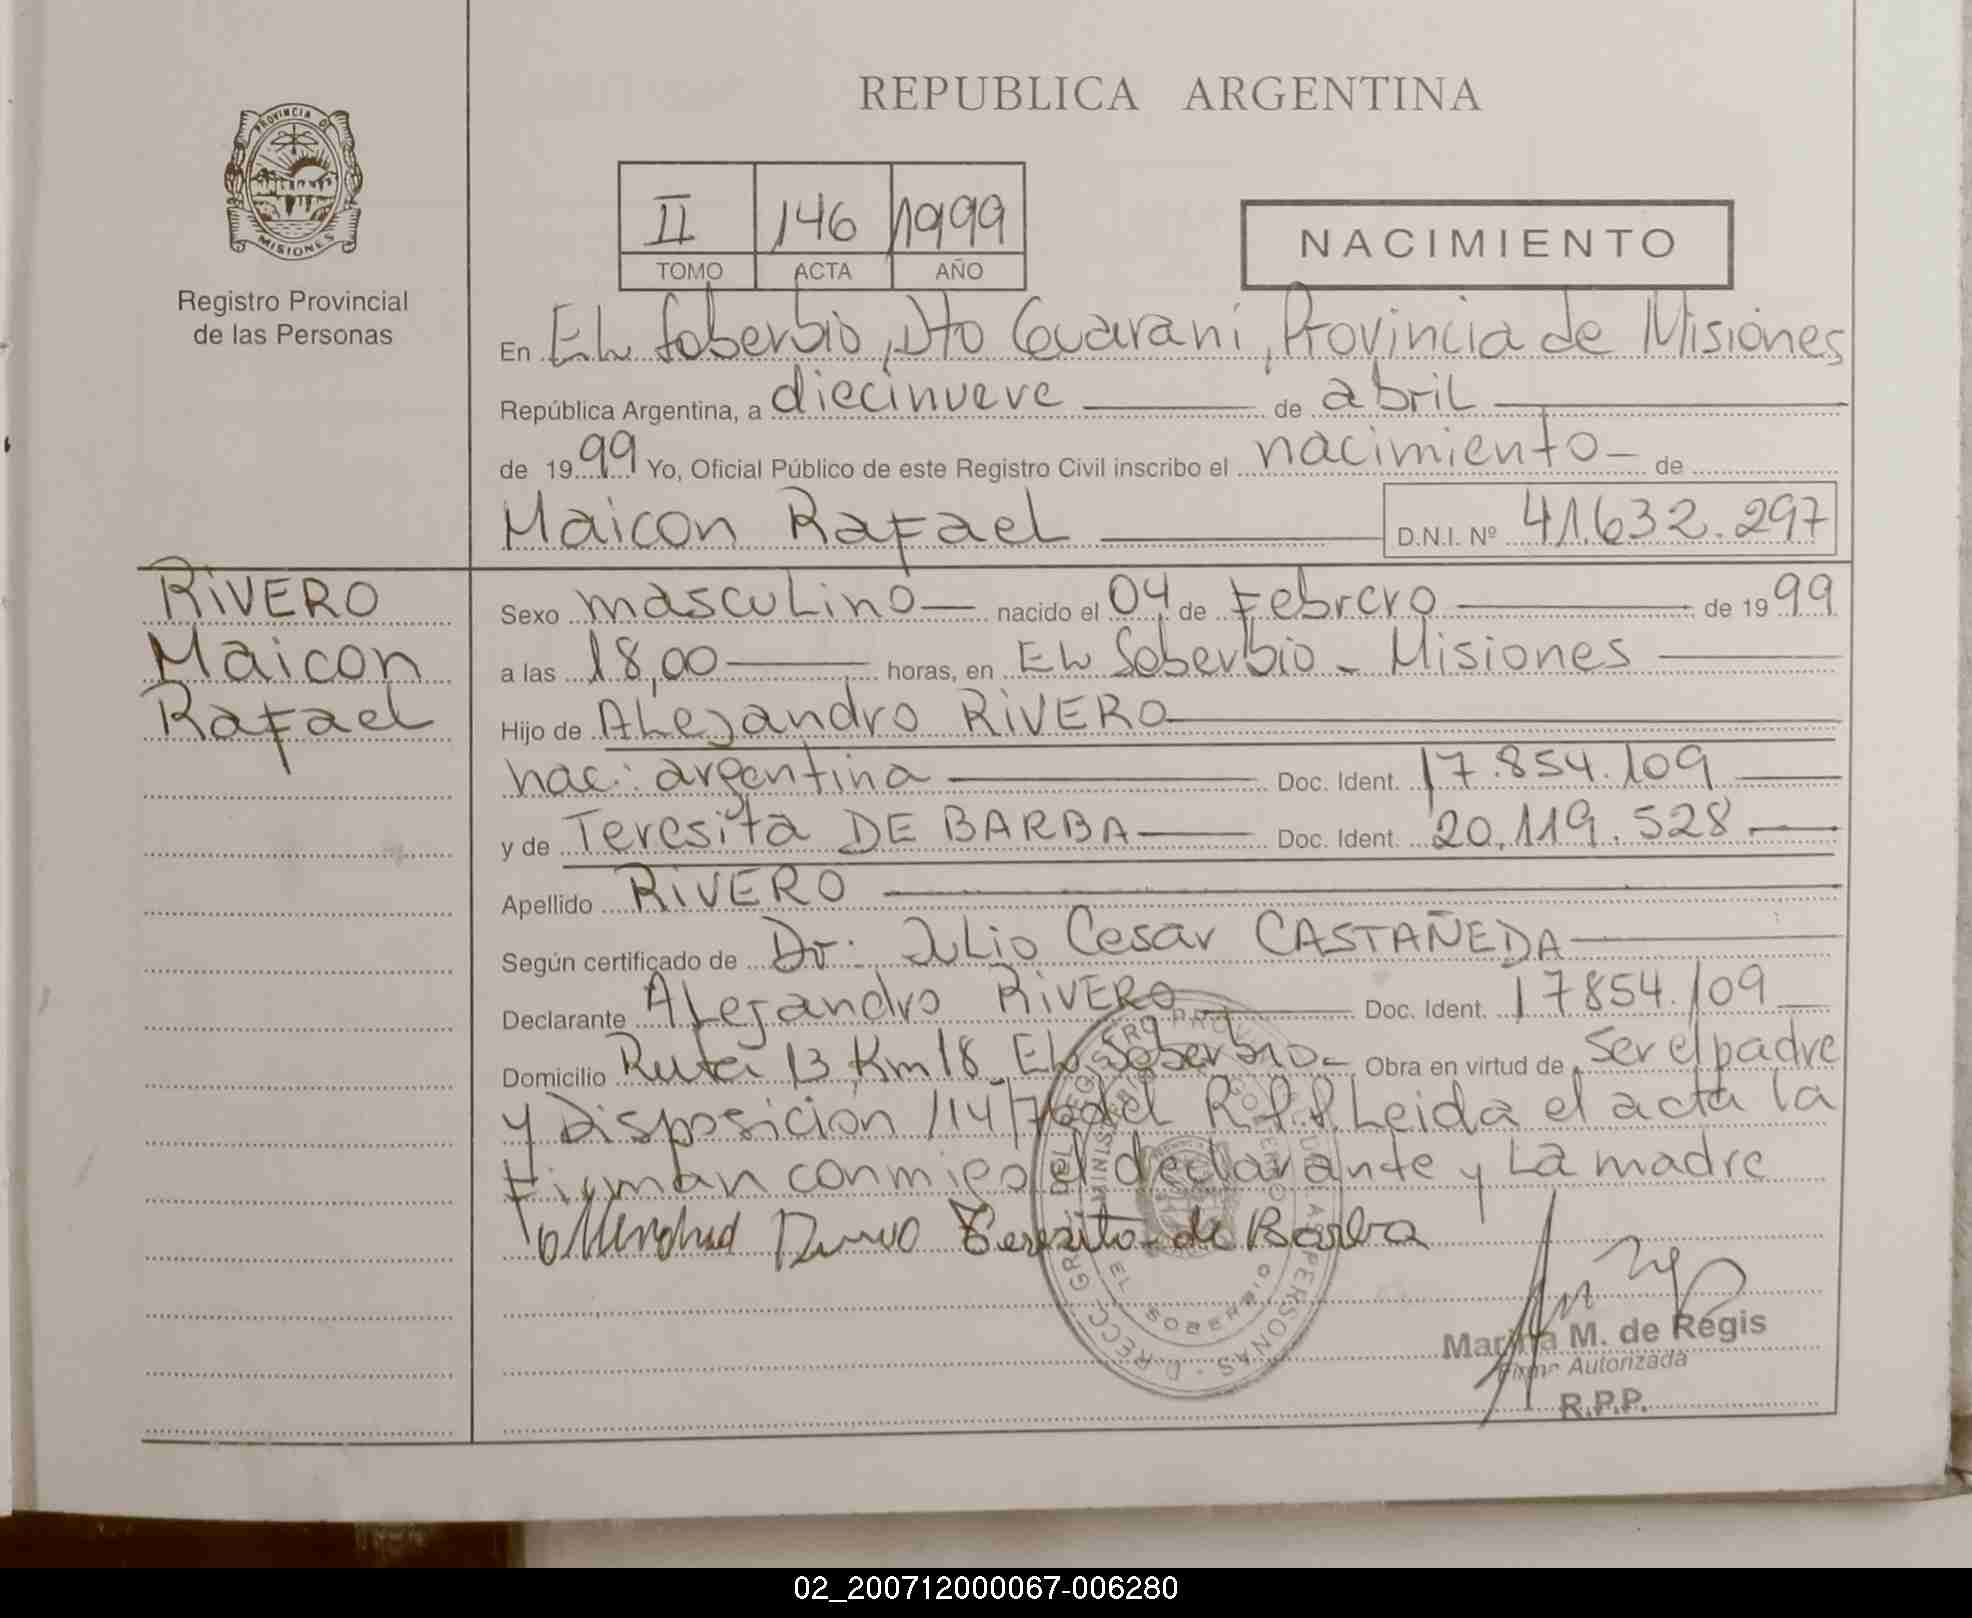 REPUBLICA ARGENTINA
PROVINCIA DE
MISIONES
Registro Provincial
de las Personas
II 146 1999
TOMO ACTA AÑO
NACIMIENTO
En EL Soberbio, Dto Guaraní, Provincia de Misiones
República Argentina, a diecinueve de abril
de 1999 Yo, Oficial Público de este Registro Civil inscribo el nacimiento de
Maicon Rafael D.N.I. Nº 41.632.297
RIVERO
Maicon
Rafael
Sexo mascuLino nacido el 04 de Febrero de 1999
a las 18,00 horas, en EL Soberbio - Misiones
Hijo de ALejandro RIVERO
nac: argentina Doc. Ident. 17.854.109
y de Teresita DE BARBA Doc. Ident. 20.119.528
Apellido RIVERO
Según certificado de Dr. JuLio Cesar CASTAÑEDA
Declarante ALejandro RIVERO Doc. Ident. 17854.109
Domicilio Ruta 13 Km 18 EL Soberbio - Obra en virtud de ser el padre
y Disposición 114/76 del R.P.P. Leida el acta la
Firman conmigo el declarante y La madre
Teresita de Barba
EL SOBERBIO
Marina M. de Regis
Firma Autorizada
R.P.P.
02_200712000067-006280